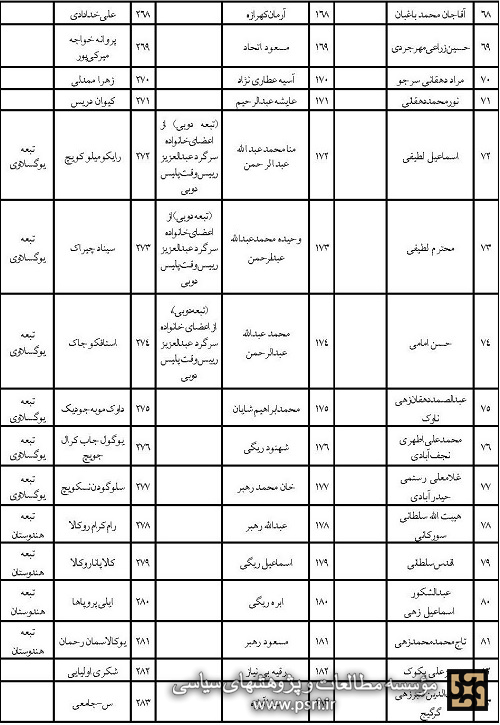 ۶۸ آقاجان محمد باغبان ۱۶۸ آرمان کهرازه ۲۶۸ علی خدادادی
۶۹ حسین زراعی مهرجردی ۱۶۹ مسعود اتحاد ۲۶۹ پروانه خواجه میرکی پور
۷۰ مراد دهقانی سرجو ۱۷۰ آسیه عطاری نژاد ۲۷۰ زهرا ممدلی
۷۱ نورمحمددهقانی ۱۷۱ عایشه عبدالرحیم ۲۷۱ کیوان دریس
۷۲ اسماعیل لطیفی ۱۷۲ منا محمد عبدالله عبدالرحمن (تبعه دوبی) از اعضای خانواده سرگرد عبدالعزیز رییس وقت پلیس دوبی ۲۷۲ رایکو میلوکویچ تبعه یوگسلاوی
۷۳ محترم لطیفی ۱۷۳ وحیده محمدعبدالله عبدلرحمن (تبعه دوبی) از اعضای خانواده سرگرد عبدالعزیز رییس وقت پلیس دوبی ۲۷۳ سیناد چیراک تبعه یوگسلاوی
۷۴ حسن امامی ۱۷۴ محمد عبدالله عبدالرحمن (تبعه دوبی) از اعضای خانواده سرگرد عبدالعزیز رییس وقت پلیس دوبی ۲۷۴ استافکو جاک تبعه یوگسلاوی
۷۵ عبدالصمددهقان زهی ناوک ۱۷۵ محمدابراهیم شایان ۲۷۵ داوک مویه جودیک تبعه یوگسلاوی
۷۶ محمدعلی اطهری نجف آبادی ۱۷۶ شهنود ریگی ۲۷۶ یوگول جاب کرال جوویچ تبعه یوگسلاوی
۷۷ غلامعلی رستمی حیدرآبادی ۱۷۷ خان محمد رهبر ۲۷۷ سلوگودن نسکویچ تبعه یوگسلاوی
۷۸ هیبت الله سلطانی سورکانی ۱۷۸ عبدالله رهبر ۲۷۸ رام کرام روکالا تبعه هندوستان
۷۹ اقدس سلطانی ۱۷۹ اسماعیل ریگی ۲۷۹ کالاپاناروکالا تبعه هندوستان
۸۰ عبدالشکور اسماعیل زهی ۱۸۰ ابره ریگی ۲۸۰ ایلی پروپاها تبعه هندوستان
۸۱ تاج محمدمحمدزهی ۱۸۱ مسعود رهبر ۲۸۱ یوکالاسمان رحمان تبعه هندوستان
علی پکوک ۱۸۲ رقیه بی نیاز ۲۸۲ شکری اولیایی
گرگیج ۲۸۳ س-جامعی
موسسه مطالعات و پژوهشهای سیاسی
www.psri.ir